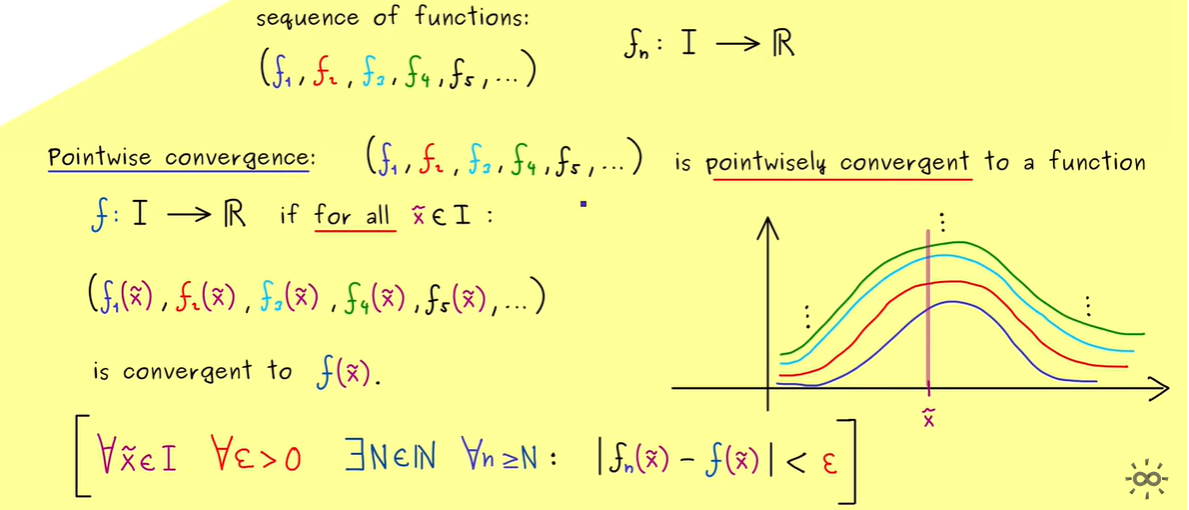 sequence of functions:
(f₁, f₂, f₃, f₄, f₅, ...)
fₙ: I → ℝ
Pointwise convergence: (f₁, f₂, f₃, f₄, f₅, ...) is pointwisely convergent to a function
f: I → ℝ if for all x̃ ∈ I :
(f₁(x̃), f₂(x̃), f₃(x̃), f₄(x̃), f₅(x̃), ...)
is convergent to f(x̃).
x̃
[∀x̃∈I ∀ε>0 ∃N∈ℕ ∀n≥N: |fₙ(x̃) - f(x̃)| < ε]